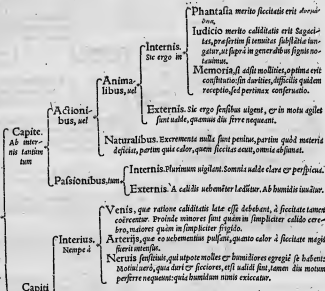 Phantasia merito siccitatis erit
Iudicio merito caliditatis erit Sagaci-
tas, præsertim si tenuitas substãtiæ iun-
gatur, ut suprà in generibus signis no-
tauimus.
Memoria, si adsit mollities, optima erit
constitutio: sin durities, difficilis quidem
receptio, sed pertinax conseruatio.
Internis.
Sic ergo in
Anima-
libus, uel
Externis. Sic ergo sensibus uigent, et in motu agiles
sunt ualde, quamuis diu ferre nequeant.
Actioni-
bus, uel
Naturalibus. Excrementa nulla sunt penitus, partim quòd materia
deficiat, partim quia calor, quem siccitas acuit, omnia absumat.
Capite.
Ab inter-
nis tantùm
tum
Internis. Plurimùm uigilant. Somnia ualde clara et perspicua.
Passionibus, tum
Externis. A calidis uehemẽter lædũtur. Ab humidis iuuãtur.
Venis, quæ ratione caliditatis latæ esse debebant, à siccitate tamen
coërcentur. Proinde minores sunt quàm in simpliciter calido cere-
bro, maiores quàm in simpliciter frigido.
Interius.
Nempe à
Arterijs, quæ eo uehementius pulsant, quanto calor à siccitate magis
fuerit intensus.
Neruis sensitiuis, qui utpote molles et humidiores egregiè se habent:
Motiui uerò, quia duri et sicciores, etsi ualidi sint, tamen diu motum
perferre nequeunt: quia humidum nimis exiccatur.
Capiti